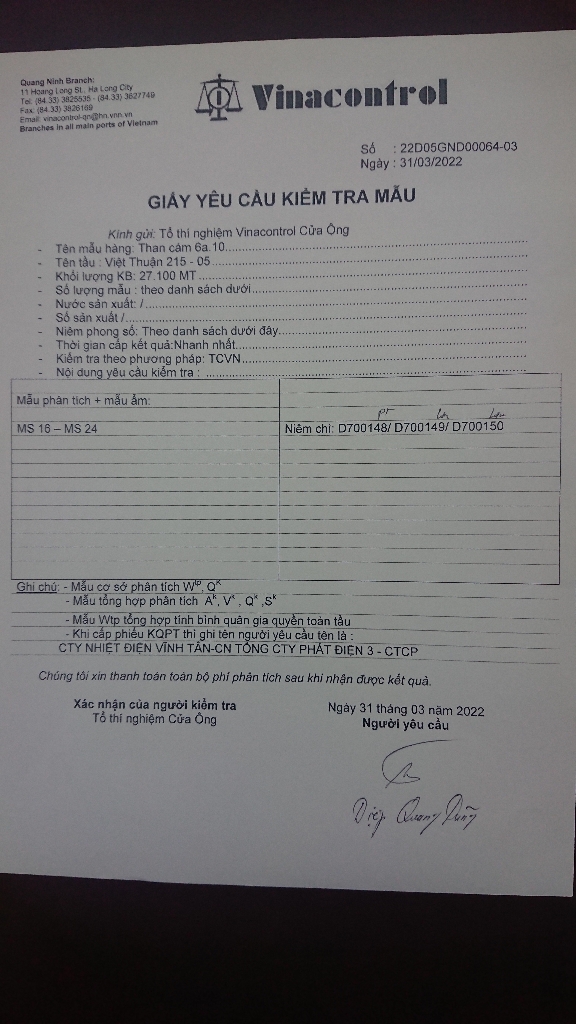 Quang Ninh Branch:
11 Hoang Long St., Ha Long City
Tel: (84.33) 3825535 - (84.33) 3627749
Fax: (84.33) 3826169
Email: vinacontrol-qn@hn.vnn.vn
Branches in all main ports of Vietnam
Vinacontrol
Số : 22D05GND00064-03
Ngày : 31/03/2022
GIẤY YÊU CẦU KIỂM TRA MẪU
Kính gửi: Tổ thí nghiệm Vinacontrol Cửa Ông
- Tên mẫu hàng: Than cám 6a.10
- Tên tầu : Việt Thuận 215 - 05
- Khối lượng KB: 27.100 MT
- Số lượng mẫu : theo danh sách dưới
- Nước sản xuất: /
- Số sản xuất /
- Niêm phong số: Theo danh sách dưới đây
- Thời gian cấp kết quả:Nhanh nhất
- Kiểm tra theo phương pháp: TCVN
- Nội dung yêu cầu kiểm tra :
Mẫu phân tích + mẫu ẩm:
MS 16 – MS 24 Niêm chì: D700148/ D700149/ D700150
Ghi chú: - Mẫu cơ sở phân tích Wtp, Qk
- Mẫu tổng hợp phân tích Ak, Vk , Qk ,Sk
- Mẫu Wtp tổng hợp tính bình quân gia quyền toàn tầu
- Khi cấp phiếu KQPT thì ghi tên người yêu cầu tên là :
CTY NHIỆT ĐIỆN VĨNH TÂN-CN TỔNG CTY PHÁT ĐIỆN 3 - CTCP
Chúng tôi xin thanh toán toàn bộ phí phân tích sau khi nhận được kết quả.
Xác nhận của người kiểm tra
Tổ thí nghiệm Cửa Ông
Ngày 31 tháng 03 năm 2022
Người yêu cầu
Diệp Quang Dũng